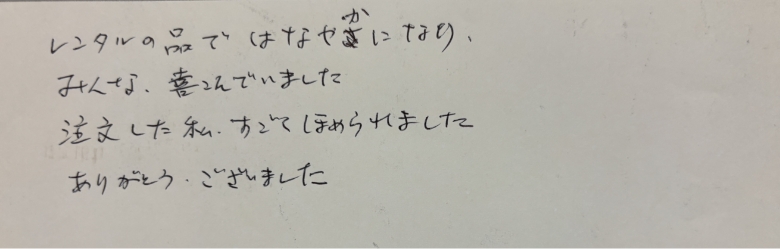 レンタルの品ではなやかになり、
みんな、喜こんでいました
注文した私、すごくほめられました
ありがとう、ございました